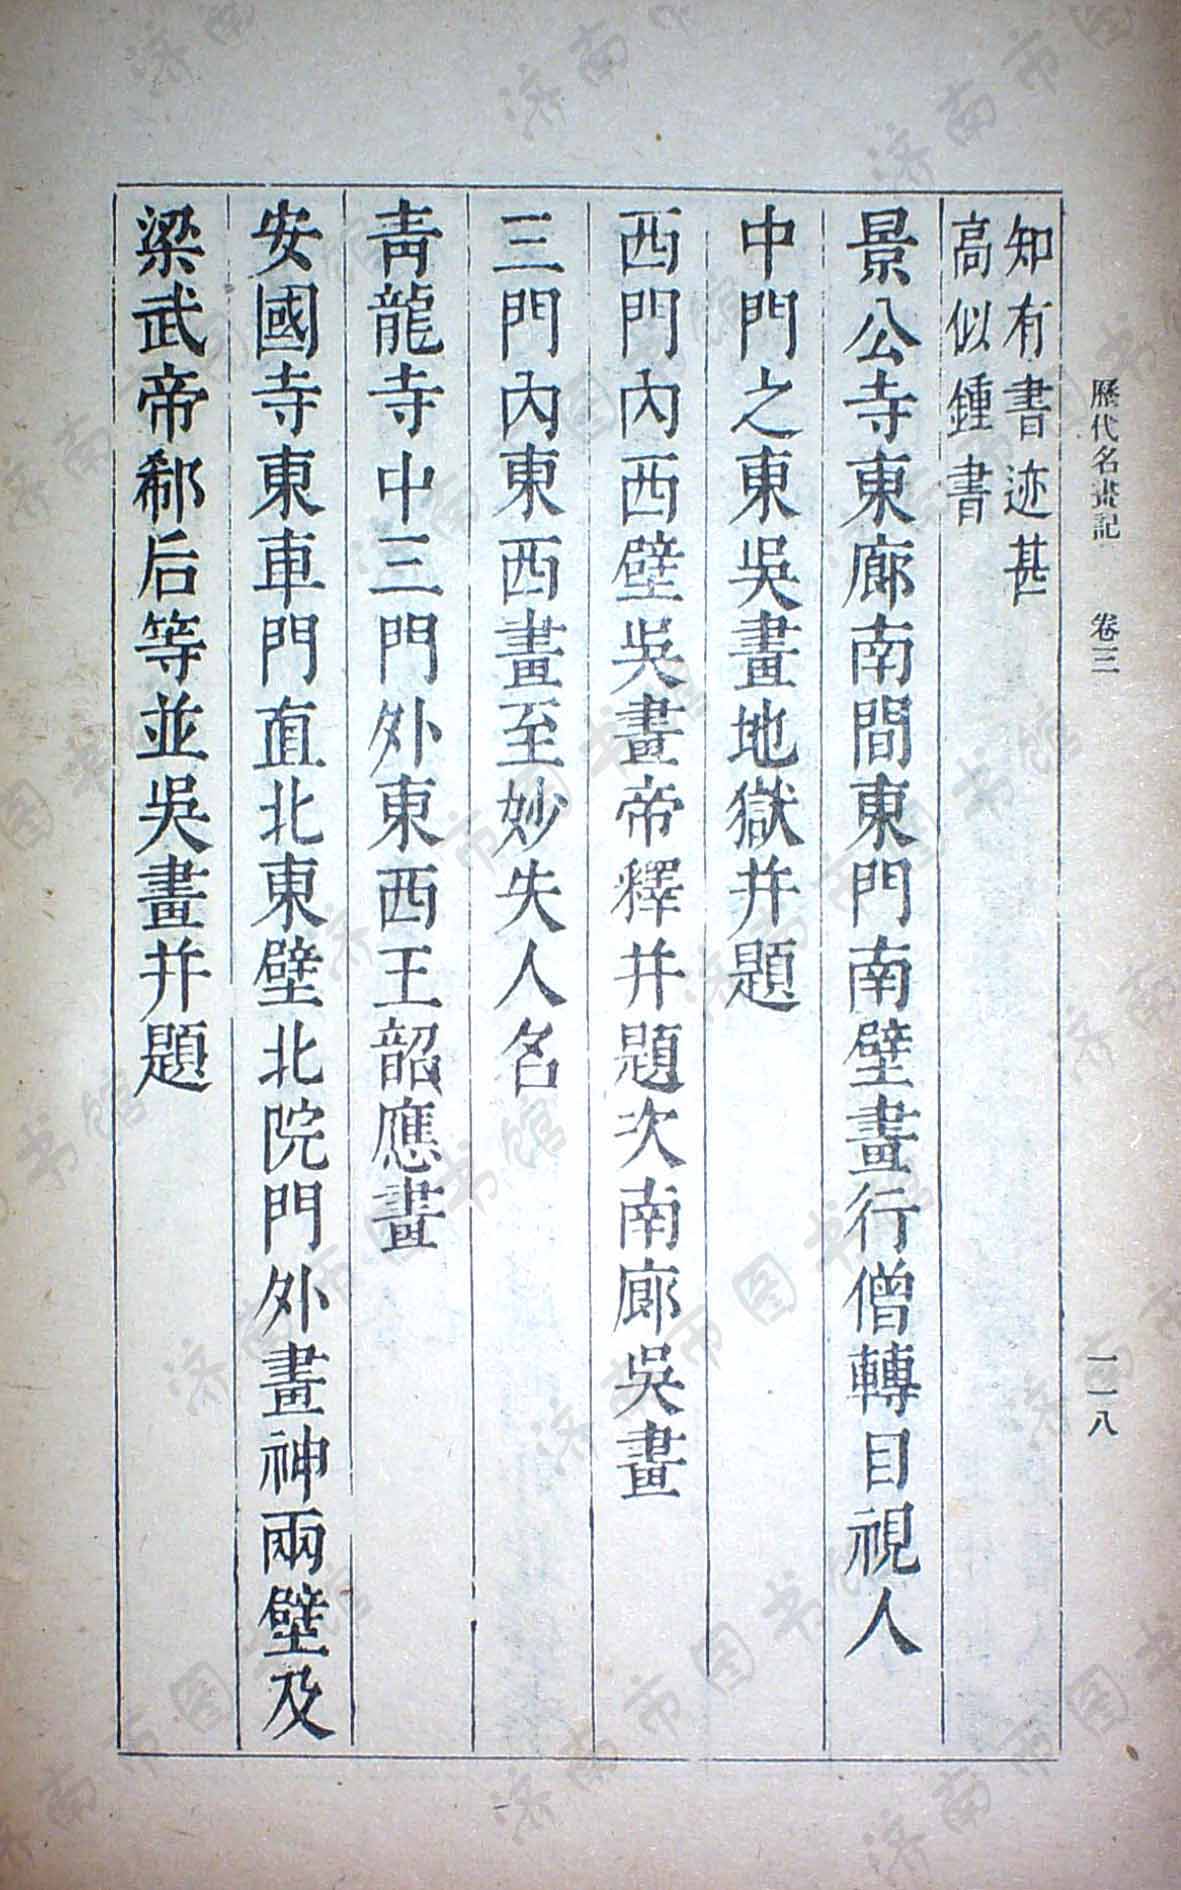 歷代名畫記 卷三 一一八
知有書迹甚
高似鍾書
景公寺東廊南間東門南壁畫行僧轉目視人
中門之東吳畫地獄并題
西門內西壁吳畫帝釋并題次南廊吳畫
三門內東西畫至妙失人名
青龍寺中三門外東西王韶應畫
安國寺東車門直北東壁北院門外畫神兩壁及
梁武帝郗后等並吳畫并題
济南市图书馆